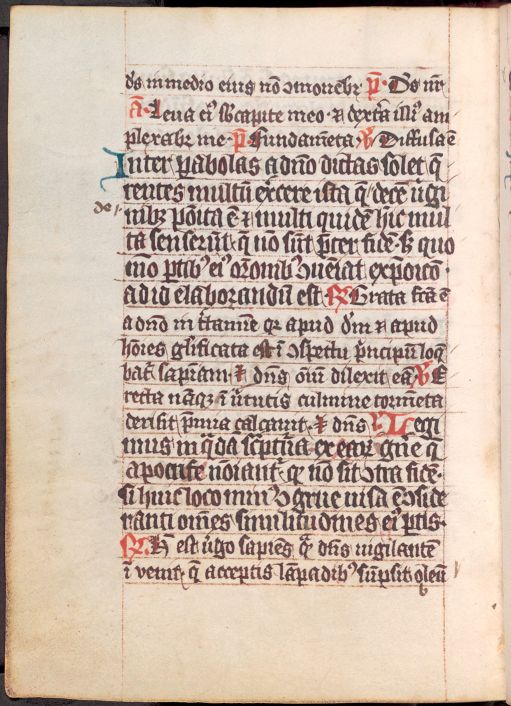 ds in medio eius nō ↄmouebr̄ p̄. Ds nr̄
ā. Leua eiꝰ sb̄ capite meo ⁊ dext̄a illiꝰ am
plexabr̄ me. p̄. Fundam̄eta. v̄ Diffusa ē
Inter p̄abolas a dn̄o dictas solet q̄
rentes multū ex̄cere ista q̄ de dece v̄gi
nibꝫ po̅ita ē ⁊ multi quidē hic mul
ta senser̄ut. q̄ nō sūt p̄ter fidē. sꝫ quo
mō ꝑtibꝰ eiꝰ om̄onibꝰ ↄueniat expo̅ico̅
ad id elaborandū est. R̄ Grata fc̄a ē
a dn̄o in c̄tamine qr apud dm̄ ⁊ apud
hōies gl̄ificata est. ī ↄspectu p̄ncipū loq̄
bat᷑ sap̄iam. ⁊ dn̄s oīu dilexit eā. v̄ E
recta nāqꝫ ī v̄tutis culmine torm̄eta
derisit p̄mia calcauit. ⁊ dn̄s Legi
mus in q̄da sc̄ptura ex ear̄ gn̄e q̄
apocrife noīant᷑. q̄ nō sit ↄtra fidē.
si huic loco mīme ↄgrue uisa ē ↄside
ranti om̄es similitudines eiꝰ ꝑtis.
R̄ H̄ est v̄go sapiēs q̄ dn̄s uigilantē
ī venit. q̄ acceptis lāpadibꝰ sūpsit oleū